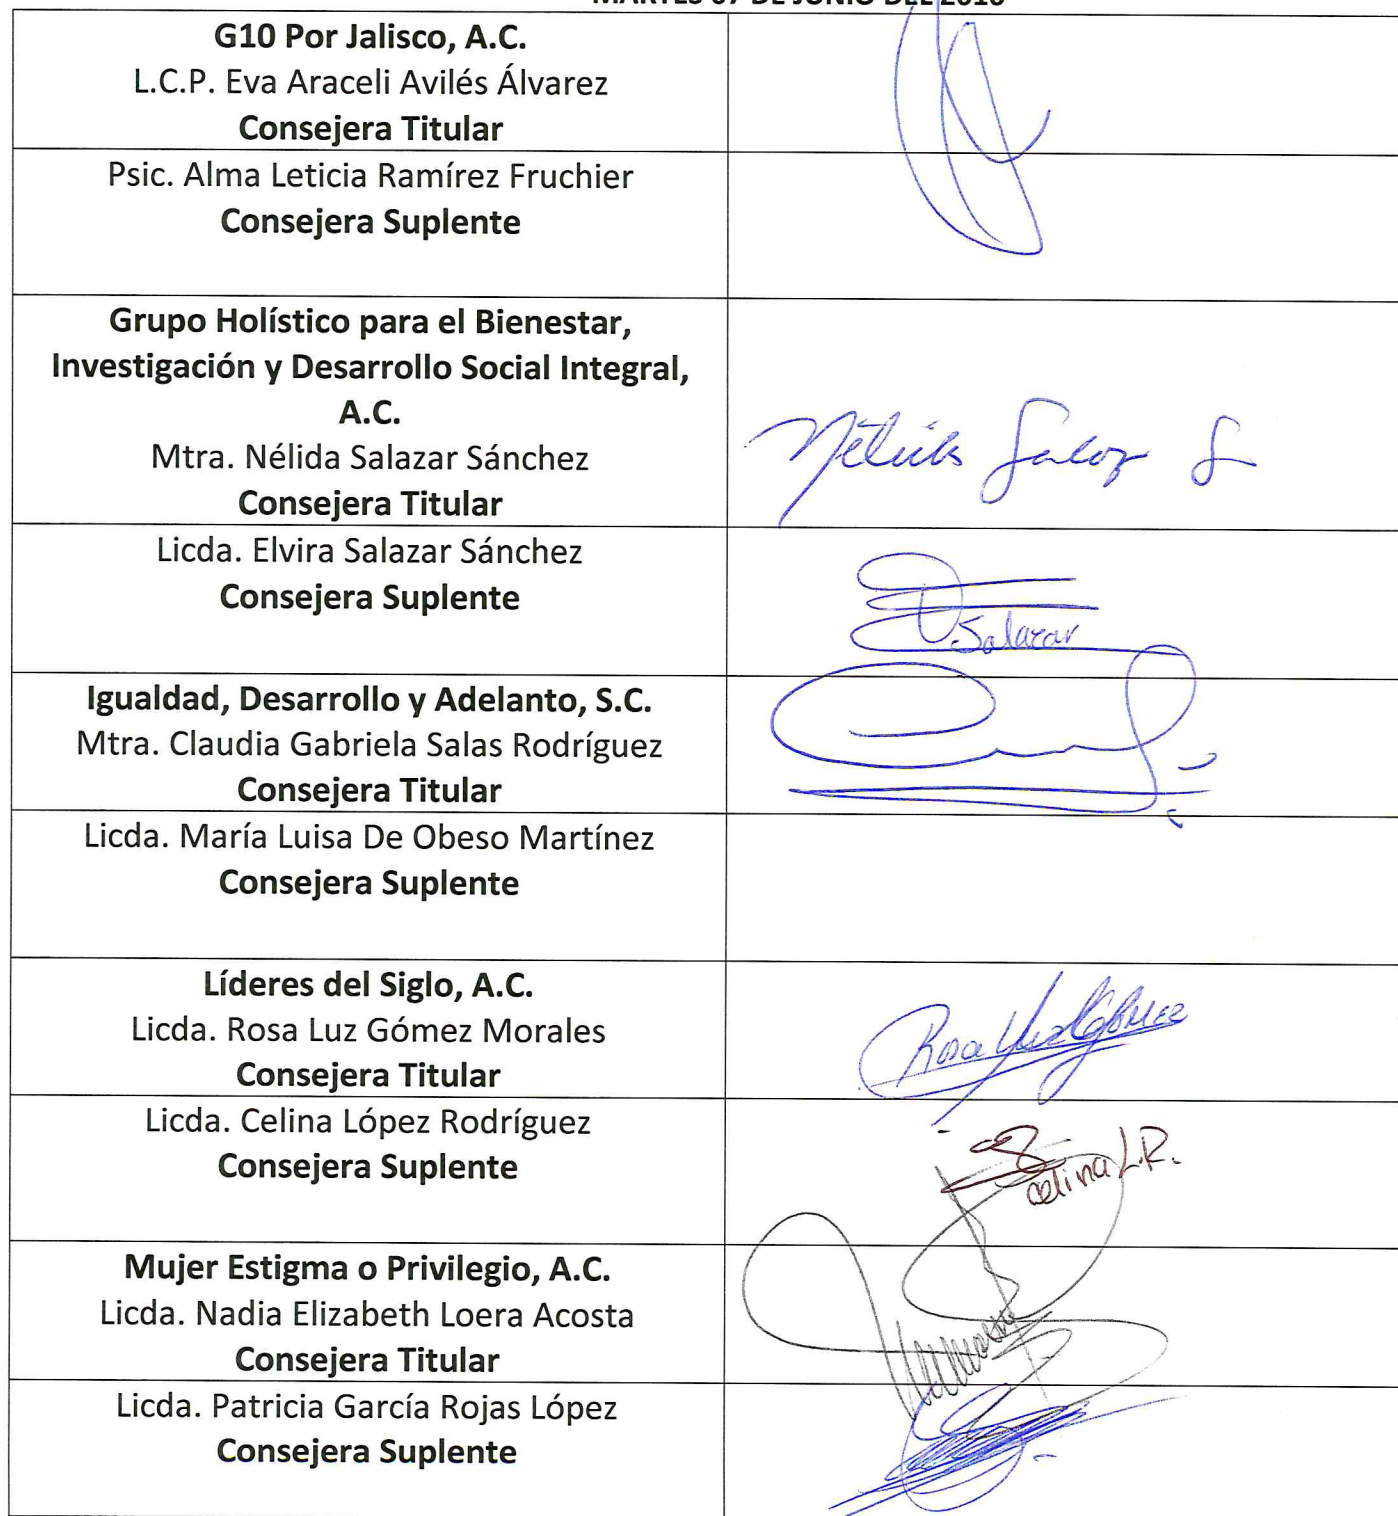 MARTES 07 DE JUNIO DEL 2016
G10 Por Jalisco, A.C.
L.C.P. Eva Araceli Avilés Álvarez
Consejera Titular
Psic. Alma Leticia Ramírez Fruchier
Consejera Suplente
Grupo Holístico para el Bienestar,
Investigación y Desarrollo Social Integral,
A.C.
Mtra. Nélida Salazar Sánchez
Consejera Titular
Licda. Elvira Salazar Sánchez
Consejera Suplente
Salazar
Igualdad, Desarrollo y Adelanto, S.C.
Mtra. Claudia Gabriela Salas Rodríguez
Consejera Titular
Licda. María Luisa De Obeso Martínez
Consejera Suplente
Líderes del Siglo, A.C.
Licda. Rosa Luz Gómez Morales
Consejera Titular
Rosa Luz Gómez
Licda. Celina López Rodríguez
Consejera Suplente
Celina L.R.
Mujer Estigma o Privilegio, A.C.
Licda. Nadia Elizabeth Loera Acosta
Consejera Titular
Licda. Patricia García Rojas López
Consejera Suplente